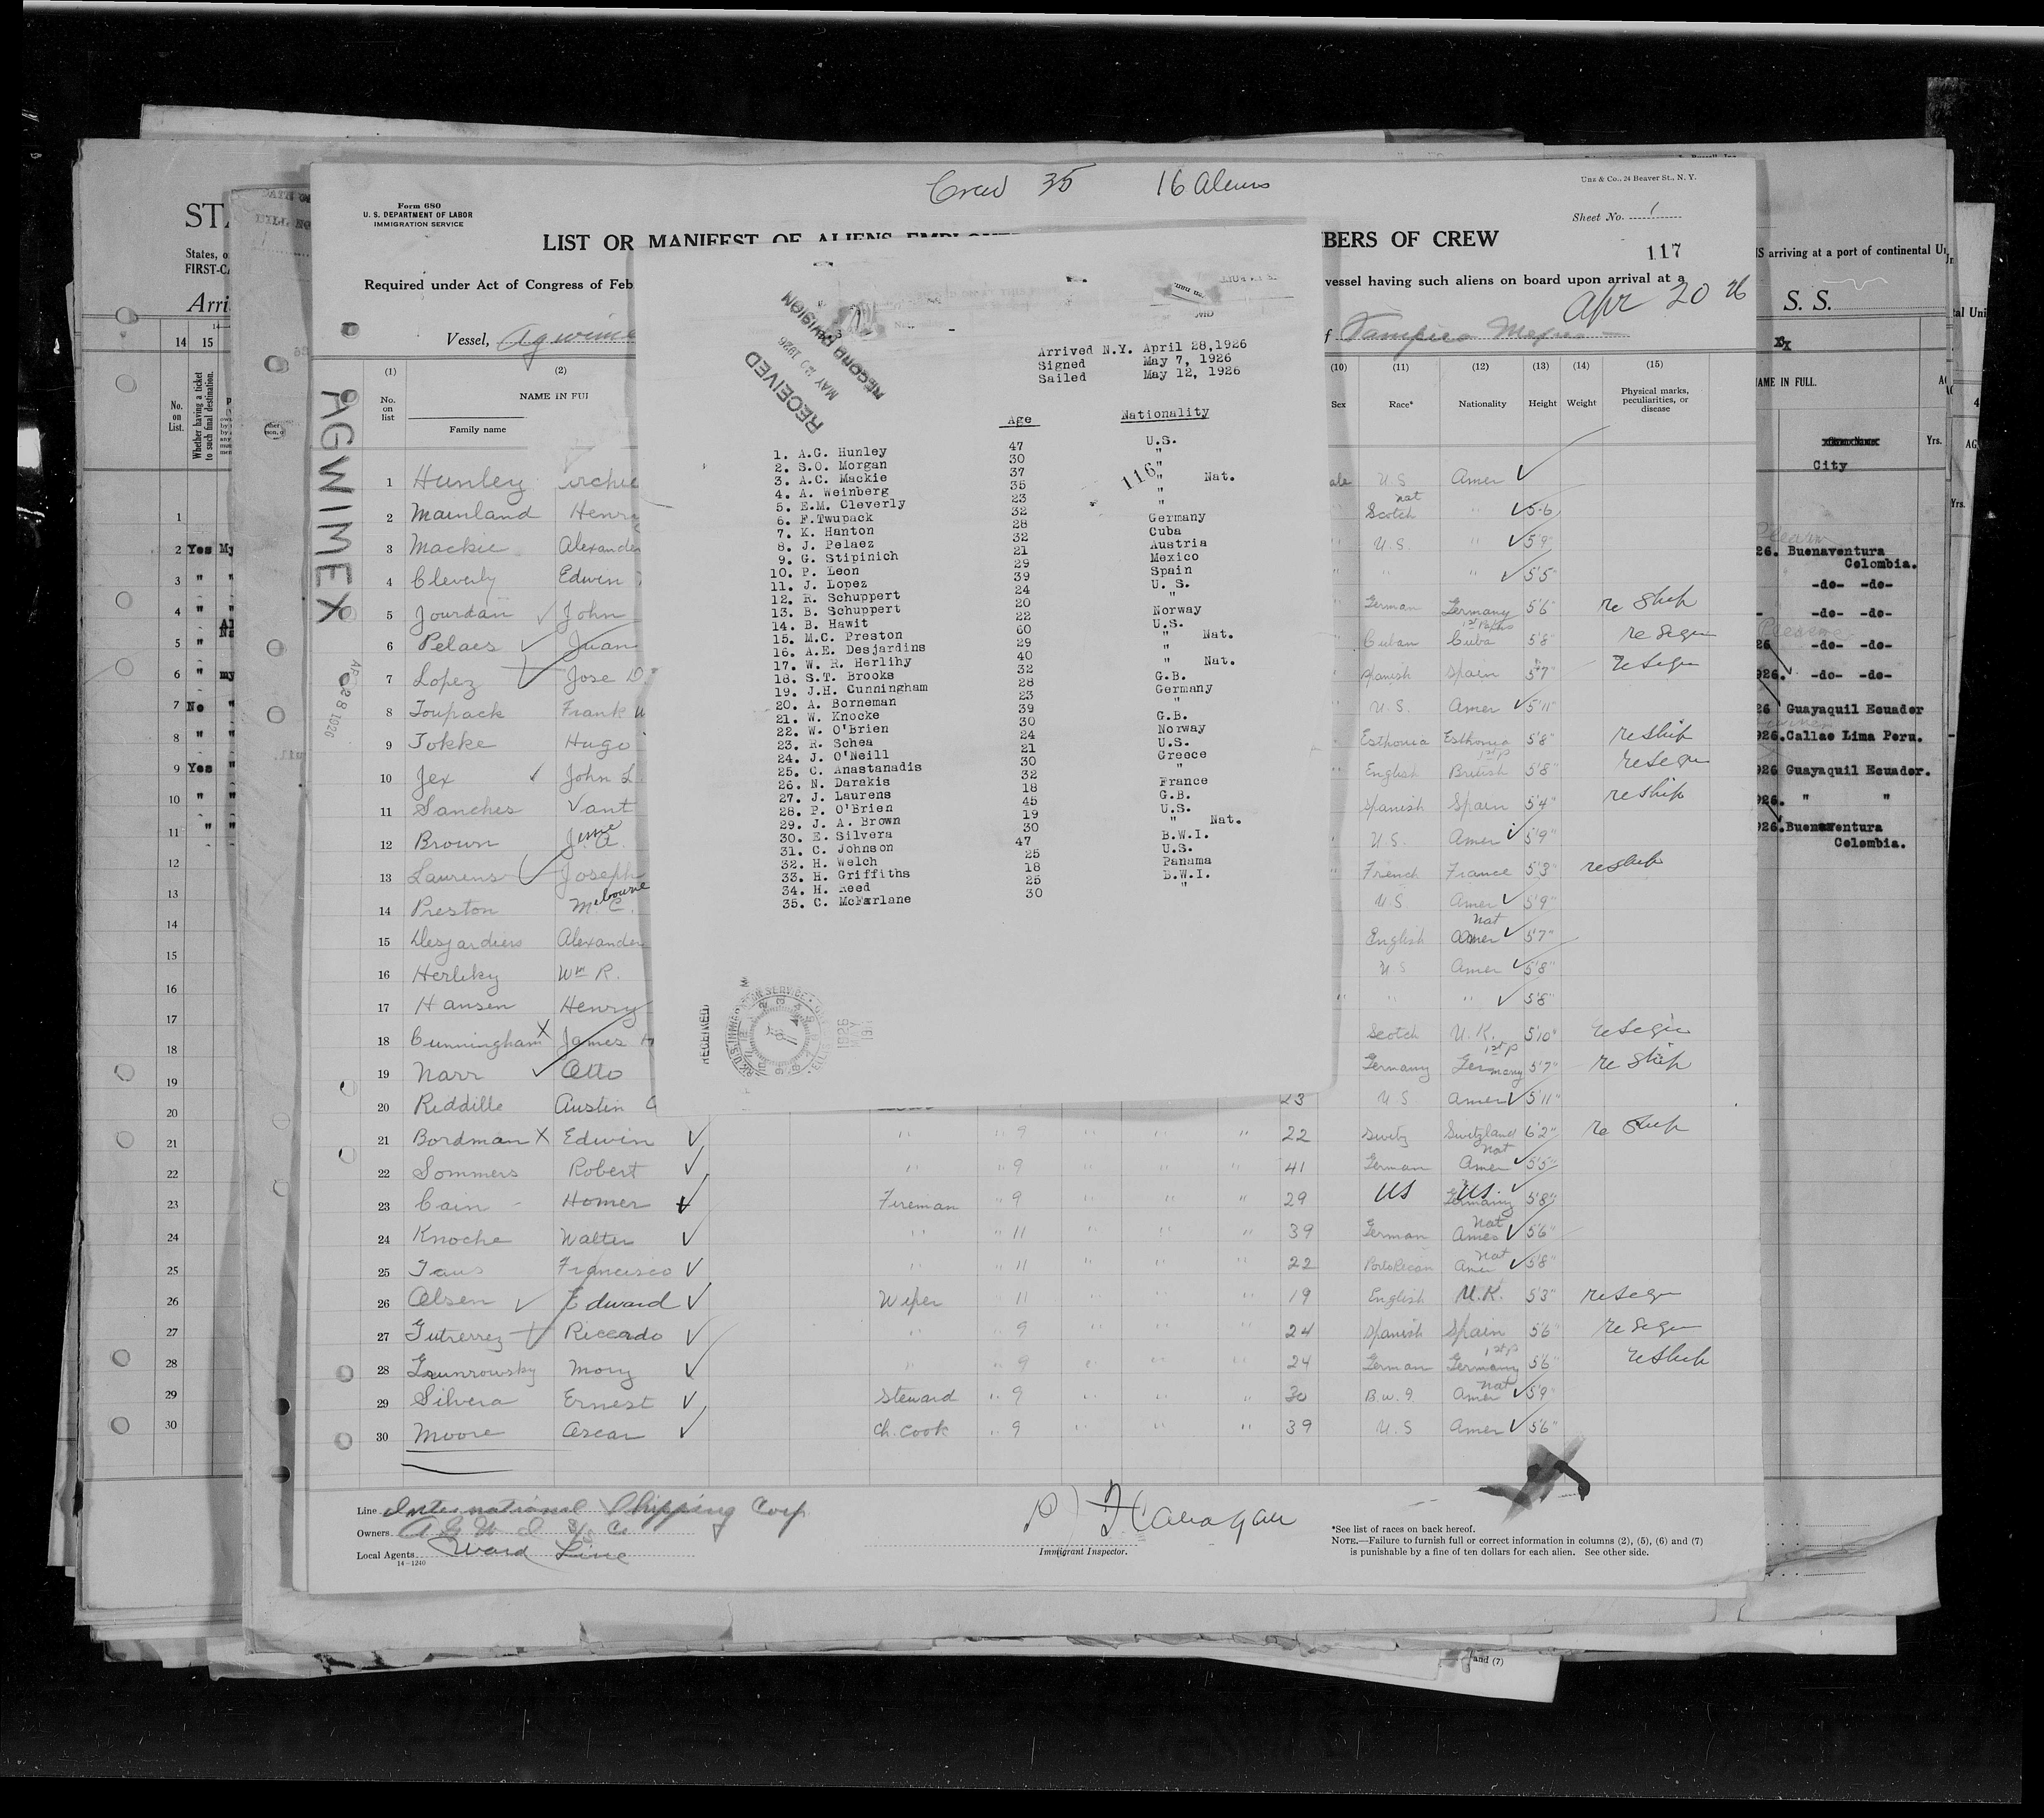 Crew 35 16 Aliens
Uns & Co., 24 Beaver St., N. Y.
Form 680
U. S. DEPARTMENT OF LABOR
IMMIGRATION SERVICE
Sheet No. 1
LIST OR MANIFEST OF ALIENS
BERS OF CREW
117
Required under Act of Congress of Feb
vessel having such aliens on board upon arrival at a
Apr 20 26
Vessel, Agwime
f Tampico Mexico
AGWIMEX
28 1926
RECEIVED
MAY 20 1926
RECORD DIVISION
Arrived N.Y. April 28,1926
Signed May 7, 1926
Sailed May 12, 1926
Age Nationality
116
1. A.G. Hunley 47 U.S.
2. S.O. Morgan 30 "
3. A.C. Mackie 37 "
4. A. Weinberg 35 " Nat.
5. E.M. Cleverly 23 "
6. F.Twupack 32 "
7. K. Hanton 28 Germany
8. J. Pelaez 32 Cuba
9. G. Stipinich 21 Austria
10. P. Leon 29 Mexico
11. J. Lopez 39 Spain
12. R. Schuppert 24 U. S.
13. B. Schuppert 20 "
14. B. Hawit 22 Norway
15. M.C. Preston 60 U.S.
16. A.E. Desjardins 29 " Nat.
17. W. R. Herlihy 40 "
18. S.T. Brooks 32 " Nat.
19. J.H. Cunningham 28 G.B.
20. A. Borneman 23 Germany
21. W. Knocke 39 "
22. W. O'Brien 30 G.B.
23. R. Schea 24 Norway
24. J. O'Neill 21 U.S.
25. C. Anastanadis 30 Greece
26. N. Darakis 32 "
27. J. Laurens 18 France
28. P. O'Brien 45 G.B.
29. J. A. Brown 19 U.S.
30. E. Silvera 30 " Nat.
31. C. Johnson 47 B.W.I.
32. H. Welch 25 U.S.
33. H. Griffiths 18 Panama
34. H. Reed 25 B.W.I.
35. C. McFarlane 30 "
RECEIVED
(1) (2) (10) (11) (12) (13) (14) (15)
No. on list NAME IN FUL Family name Sex Race* Nationality Height Weight Physical marks, peculiarities, or disease
1 Hunley U.S Amer
2 Mainland Henry Scotch nat " 5-6
3 Mackie Alexander U.S. " 5'9"
4 Cleverly Edwin " " 5'5"
5 Jourdan John German Germany 5'6" re Ship
6 Pelaes Juan Cuban Cuba 5'8" resign
7 Lopez Jose D Spanish Spain 5'7" resign
8 Toupack Frank W U.S. Amer 5'11"
9 Tokke Hugo Esthonia Esthonia 5'8" reship
10 Jex John L. English British 5'8" resign
11 Sanches Spanish Spain 5'4" reship
12 Brown Jesse A. U.S. Amer 5'9"
13 Laurens Joseph French France 5'3" reship
14 Preston Melbourne C. U.S Amer 5'9"
15 Desjardiens Alexander English nat Amer 5'7"
16 Herlihy Wm R. U S Amer 5'8"
17 Hansen Henry " " 5'8"
18 Cunningham X James H Scotch U.K. 5'10" resign
19 Narr Otto Germany 1st p Germany 5'7" re Ship
20 Riddille Austin C 23 U S Amer 5'11"
21 Bordman X Edwin " " 9 " " " 22 Switz Switzland 6'2" re Ship
22 Sommers Robert " " 9 " " " 41 German nat Amer 5'5"
23 Cain Homer Fireman " 9 " " " 29 US US Germany 5'8"
24 Knoche Walter " " 11 " " " 39 German Nat Amer 5'6"
25 Francisco " " 11 " " " 22 PortoRican nat Amer 5'8"
26 Olsen Edward Wiper " 11 " " " 19 English U.K. 5'3" resign
27 Gutierrez Riccardo " " 9 " " " 24 Spanish Spain 5'6" resign
28 Mory " " 9 " " " 24 German 1st p Germany 5'6" reship
29 Silvera Ernest Steward " 9 " " " 30 B.W.I nat Amer 5'9"
30 Moore Oscar Ch. Cook " 9 " " " 39 U.S Amer 5'6"
Line International Shipping Corp
Owners A G W I S/S Co
Local Agents Ward Line
14-1240
Immigrant Inspector.
*See list of races on back hereof.
NOTE.—Failure to furnish full or correct information in columns (2), (5), (6) and (7)
is punishable by a fine of ten dollars for each alien. See other side.
and (7)
STA
States, o
FIRST-CA
Arri
14 15
No. on List.
Whether having a ticket to such final destination.
1
2 Yes My
3 " "
4 " "
5 "
6 " my
7 No "
8 " "
9 Yes "
10 " "
11 " "
12
13
14
15
16
17
18
19
20
21
22
23
24
25
26
27
28
29
30
S arriving at a port of continental U
S. S.
AME IN FULL.
City
Yrs.
26. Buenaventura
Colombia.
-do- -do-
-do- -do-
26 -do- -do-
926. -do- -do-
26 Guayaquil Ecuador
926.Callao Lima Peru.
926 Guayaquil Ecuador.
926. " "
926.Buenaventura
Colombia.